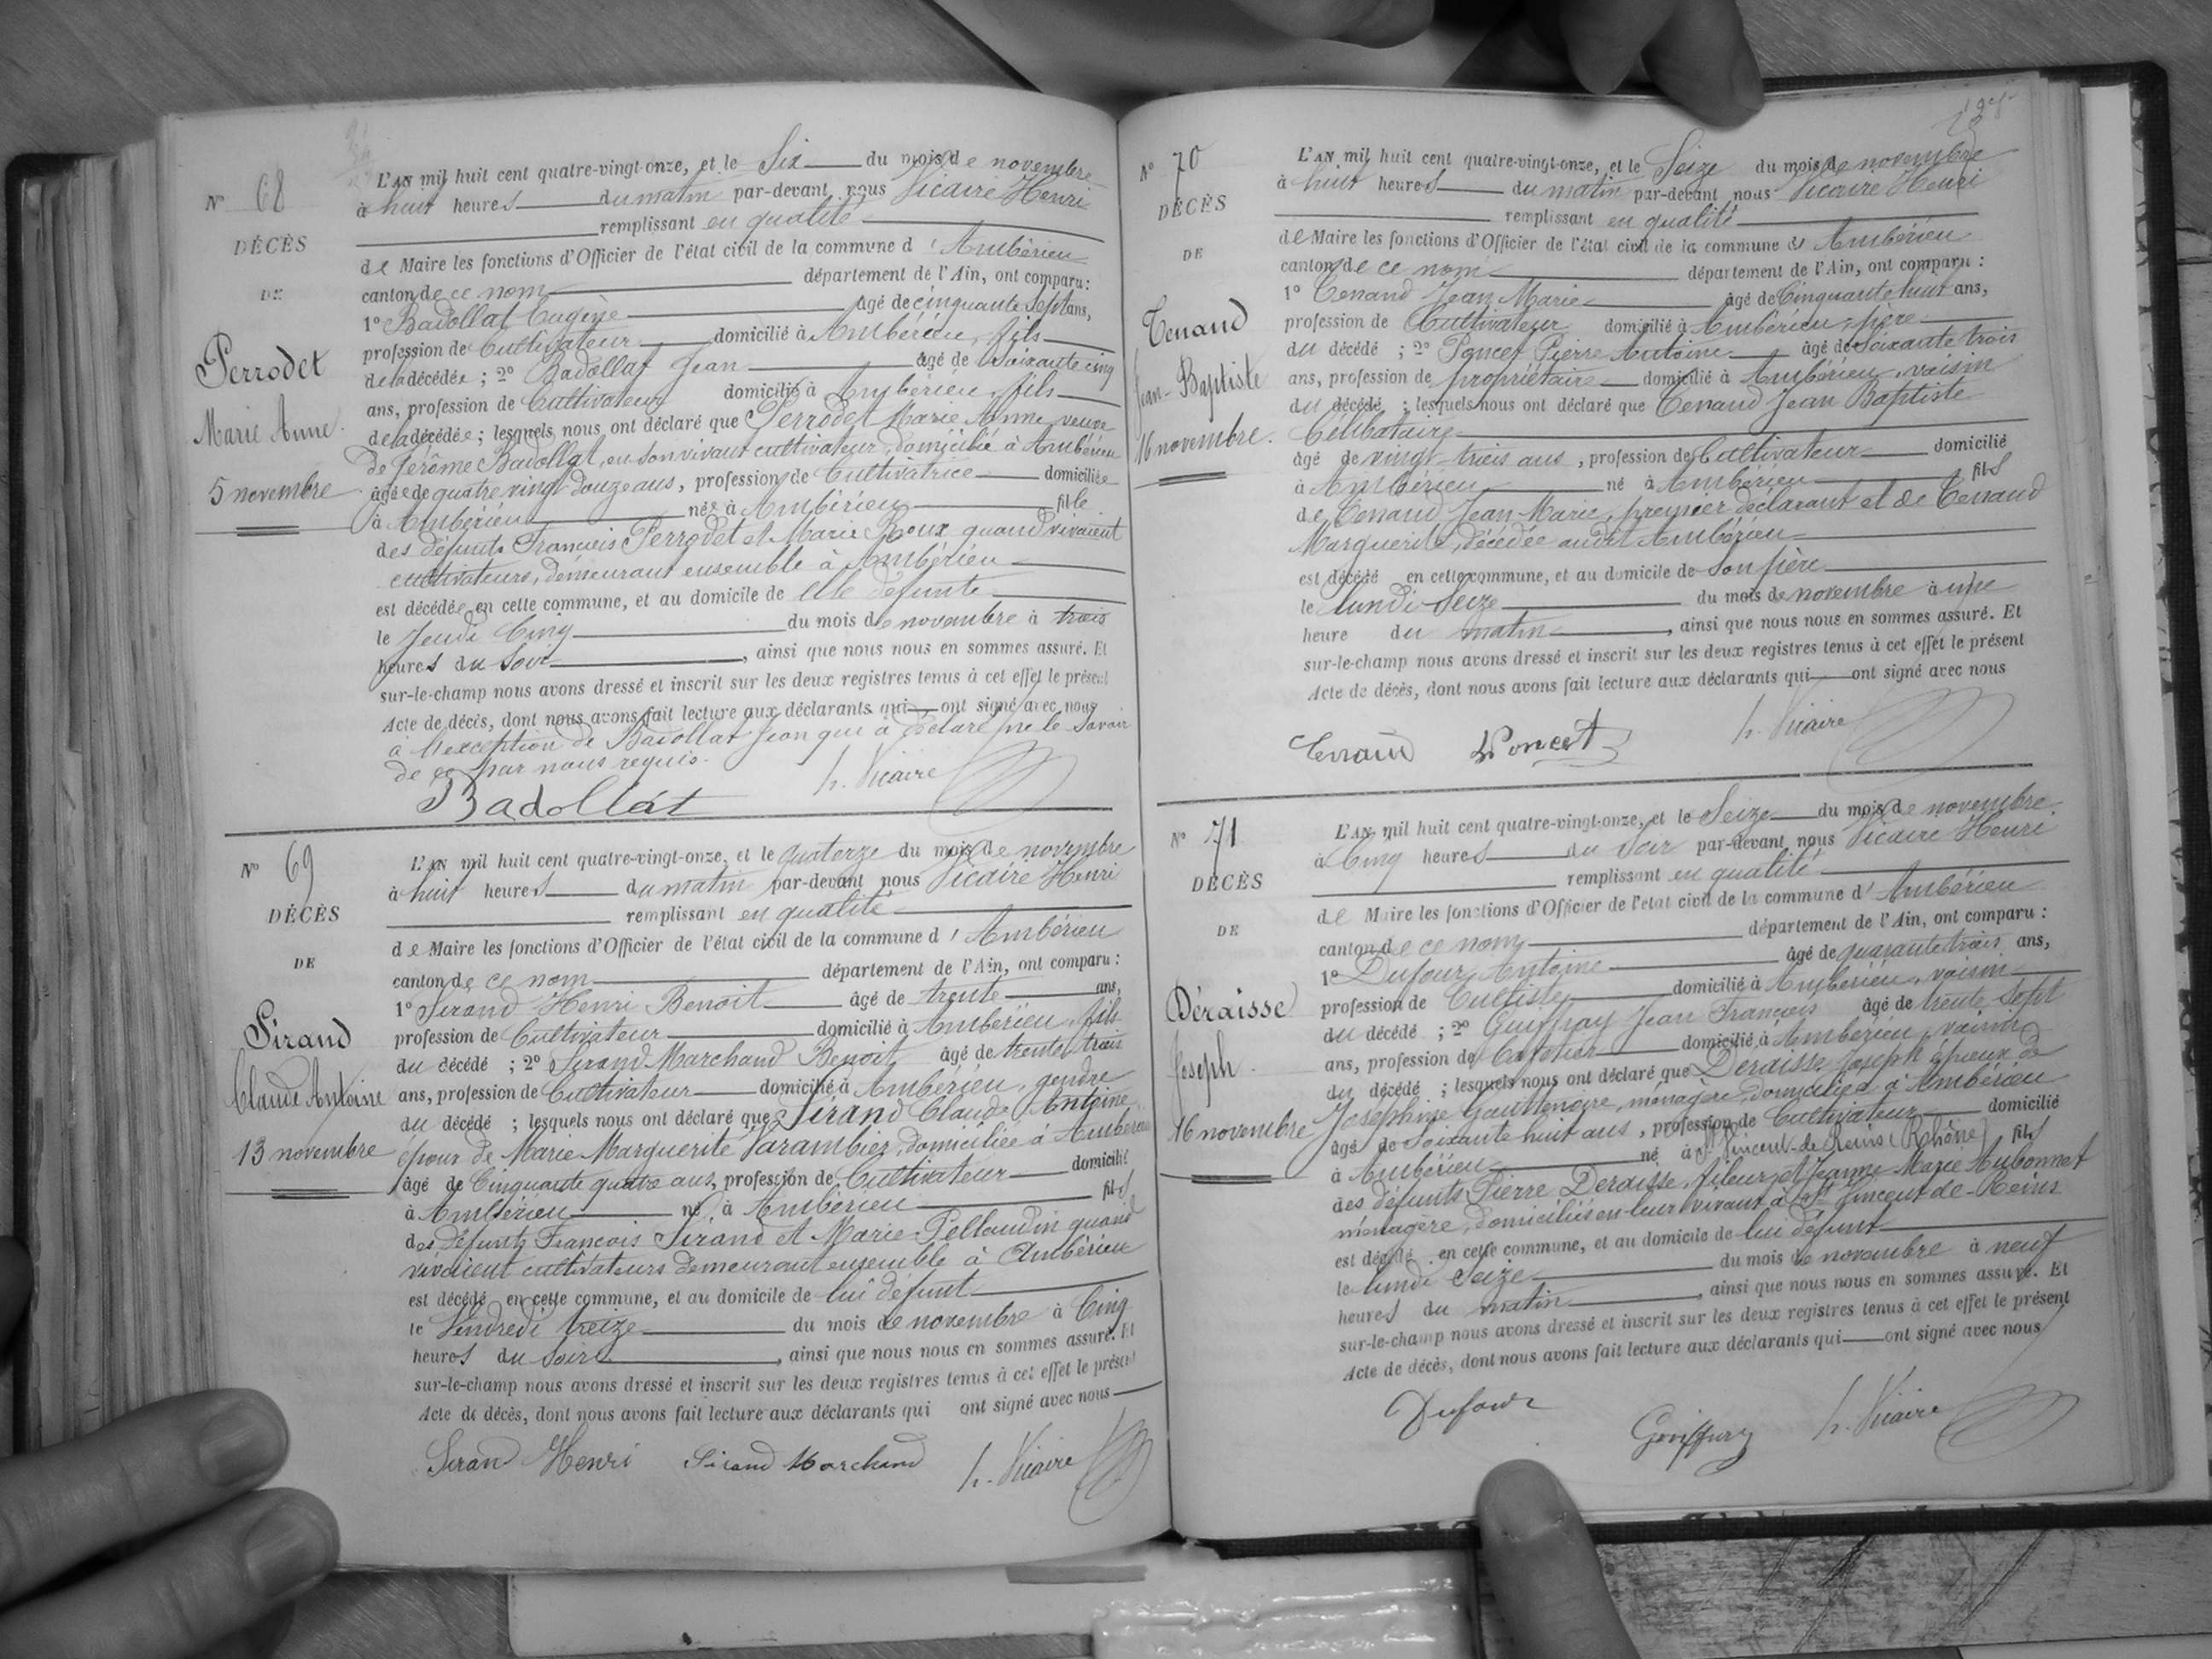 N° 68
DÉCÈS
DE
Perrodet
Marie Anne
5 novembre
L'AN mil huit cent quatre-vingt-onze, et le Six du mois de novembre
à huit heures du matin par-devant nous Vicaire Henri
remplissant en qualité
de Maire les fonctions d'Officier de l'état civil de la commune d'Ambérieu
canton de ce nom département de l'Ain, ont comparu :
1° Badollat Eugène âgé de cinquante sept ans,
profession de Cultivateur domicilié à Ambérieu, fils
de la décédée ; 2° Badollat Jean âgé de soixante cinq
ans, profession de Cultivateur domicilié à Ambérieu, fils
de la décédée ; lesquels nous ont déclaré que Perrodet Marie Anne veuve
de Jérôme Badollat, en son vivant cultivateur, domicilié à Ambérieu
âgée de quatre vingt douze ans, profession de Cultivatrice domiciliée
à Ambérieu née à Ambérieu fille
des défunts François Perrodet et Marie Roux quand vivaient
cultivateurs, demeurant ensemble à Ambérieu
est décédée en cette commune, et au domicile de elle défunte
le Jeudi Cinq du mois de novembre à trois
heures du soir, ainsi que nous nous en sommes assuré. Et
sur-le-champ nous avons dressé et inscrit sur les deux registres tenus à cet effet le présent
Acte de décès, dont nous avons fait lecture aux déclarants qui ont signé avec nous
à l'exception de Badollat Jean qui a déclaré ne le savoir
de ce par nous requis.
h. Vicaire
Badollat
N° 69
DÉCÈS
DE
Sirand
Claude Antoine
13 novembre
L'AN mil huit cent quatre-vingt-onze, et le quatorze du mois de novembre
à huit heures du matin par-devant nous Vicaire Henri
remplissant en qualité
de Maire les fonctions d'Officier de l'état civil de la commune d'Ambérieu
canton de ce nom département de l'Ain, ont comparu :
1° Sirand Henri Benoit âgé de trente ans,
profession de Cultivateur domicilié à Ambérieu, fils
du décédé ; 2° Sirand Marchand Benoit âgé de trente trois
ans, profession de Cultivateur domicilié à Ambérieu, gendre
du décédé ; lesquels nous ont déclaré que Sirand Claude Antoine
époux de Marie Marguerite Parambier, domiciliée à Ambérieu
âgé de Cinquante quatre ans, profession de Cultivateur domicilié
à Ambérieu né à Ambérieu fils
des défunts François Sirand et Marie Pellaudin quand
vivaient cultivateurs demeurant ensemble à Ambérieu
est décédé en cette commune, et au domicile de lui défunt
le Vendredi treize du mois de novembre à Cinq
heures du soir, ainsi que nous nous en sommes assuré. Et
sur-le-champ nous avons dressé et inscrit sur les deux registres tenus à cet effet le présent
Acte de décès, dont nous avons fait lecture aux déclarants qui ont signé avec nous
Siran Henri Sirand Marchand h. Vicaire
N° 70
DÉCÈS
DE
Tenand
Jean-Baptiste
16 novembre.
L'AN mil huit cent quatre-vingt-onze, et le Seize du mois de novembre
à huit heures du matin par-devant nous Vicaire Henri
remplissant en qualité
de Maire les fonctions d'Officier de l'état civil de la commune d'Ambérieu
canton de ce nom département de l'Ain, ont comparu :
1° Tenand Jean Marie âgé de Cinquante huit ans,
profession de Cultivateur domicilié à Ambérieu, père
du décédé ; 2° Poncet Pierre Antoine âgé de soixante trois
ans, profession de propriétaire domicilié à Ambérieu, voisin
du décédé ; lesquels nous ont déclaré que Tenand Jean Baptiste
Célibataire
âgé de vingt-trois ans, profession de Cultivateur domicilié
à Ambérieu né à Ambérieu fils
de Tenand Jean Marie, premier déclarant et de Tenand
Marguerite, décédée audit Ambérieu
est décédé en cette commune, et au domicile de son père
le lundi Seize du mois de novembre à une
heure du matin, ainsi que nous nous en sommes assuré. Et
sur-le-champ nous avons dressé et inscrit sur les deux registres tenus à cet effet le présent
Acte de décès, dont nous avons fait lecture aux déclarants qui ont signé avec nous
Tenand Poncet h. Vicaire
N° 71
DÉCÈS
DE
Déraisse
Joseph
16 novembre
L'AN mil huit cent quatre-vingt-onze, et le Seize du mois de novembre
à Cinq heures du soir par-devant nous Vicaire Henri
remplissant en qualité
de Maire les fonctions d'Officier de l'état civil de la commune d'Ambérieu
canton de ce nom département de l'Ain, ont comparu :
1° Dufour Antoine âgé de quarante trois ans,
profession de domicilié à Ambérieu, voisin
du décédé ; 2° Jean François âgé de trente sept
ans, profession de domicilié à Ambérieu, voisin
du décédé ; lesquels nous ont déclaré que Deraisse Joseph époux de
Joséphine ménagère, domiciliée à Ambérieu
âgé de soixante huit ans, profession de Cultivateur domicilié
à Ambérieu né à St Vincent-de-Reins (Rhône) fils
des défunts Pierre Deraisse, fileur et Jeanne Marie Aubonnet
ménagère, domiciliés en leur vivant à St Vincent-de-Reins
est décédé en cette commune, et au domicile de lui défunt
le lundi Seize du mois de novembre à neuf
heures du matin, ainsi que nous nous en sommes assuré. Et
sur-le-champ nous avons dressé et inscrit sur les deux registres tenus à cet effet le présent
Acte de décès, dont nous avons fait lecture aux déclarants qui ont signé avec nous
Dufour h. Vicaire